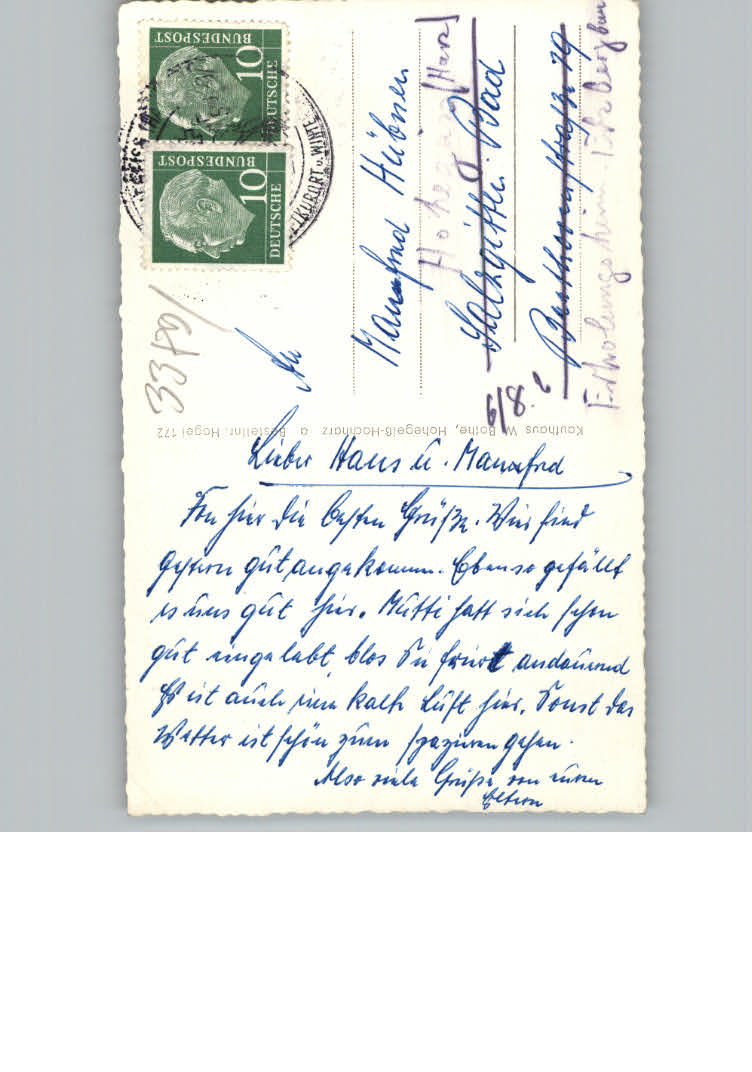 DEUTSCHE
BUNDESPOST
10
DEUTSCHE
BUNDESPOST
10
KURORT u. WINTE
3389/
An
Manfred Hübner
Hohegeiß (Harz)
Salzgitter-Bad
Beethovenstraße 79
Erholungsheim
6/8.
Kaufhaus W. Bothe, Hohegeiß-Hochharz a Bestellnr. Hogei 172
Lieber Hans u. Mannfred
Von hier die besten Grüße. Wir sind
gestern gut angekommen. Ebenso gefällt
es uns gut hier. Mutti hatt sich schon
gut eingelebt blos Sie friert andauernd
Es ist auch eine kalte Luft hier. Sonst das
Wetter ist schön zum spazieren gehen.
Also viele Grüße von euren
Eltern